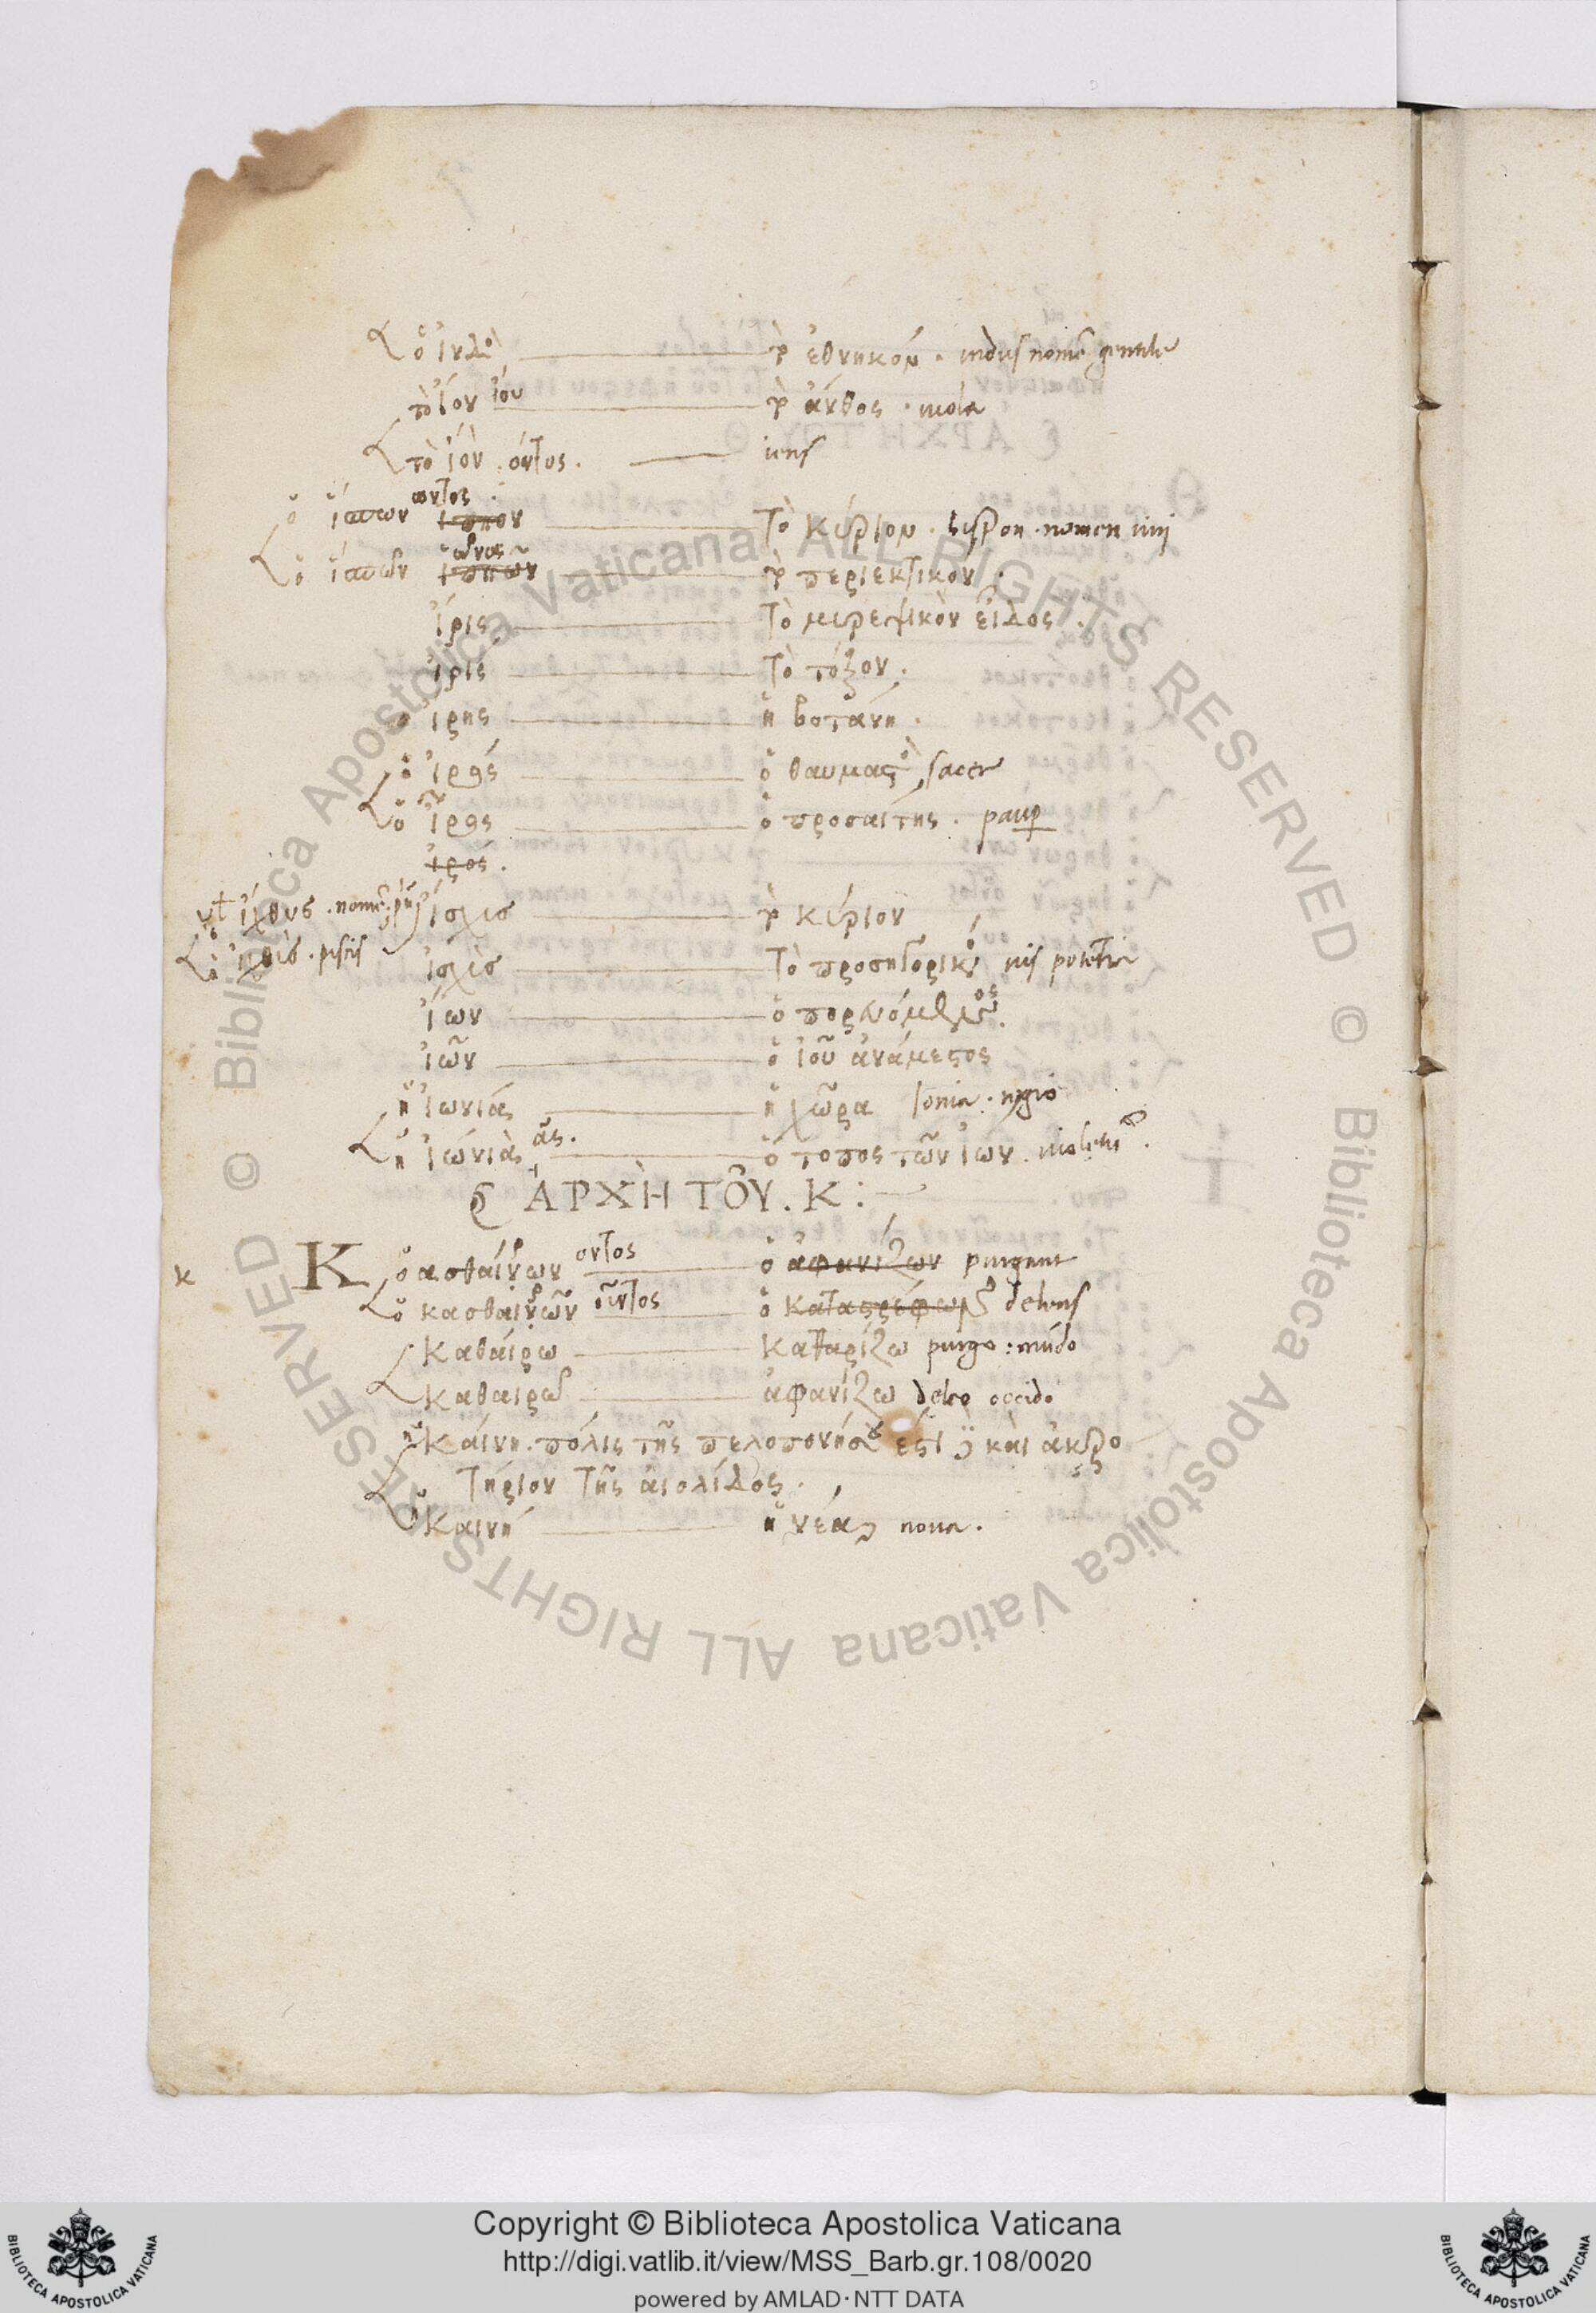 ὁ ἰνδὸς τὸ ἐθνικόν . indus nomē gentile
τὸ ἴον ἴου τὸ ἄνθος . viola
τὸ ἰὸν . όντος . iens
ὁ ἵππων οντος . ιππον τὸ κύριον . hippon . nomen viri
ὁ ἱππών ῶνος ιππῶν τὸ περιεκτικόν .
ἶρις τὸ μυρεψικὸν εἶδος .
ἰρίς τὸ τόξον .
ὁ ιρης ἡ βοτάνη .
ὁ ἱρός ὁ θαυμαστὸς sacer
ὁ ἶρος ὁ προσαίτης . paup
ἱρός .
ἴσχυσ τὸ κύριον
ut ἴχθυς . nomē
ὁ ἰχθὺσ . piscis
ἰσχὺσ τὸ προσηγορικόν vis potētia
ἴων
ἰῶν ὁ ἰοῦ ἀνάμεστος
ἡ ἰωνίας ἡ χῶρα Ionia . regio
ἡ ἰώνιὰ ᾶς . ὁ τοπος τῶν ἴων . violetū .
ἈΡΧῊ ΤΟῦ . Κ :
κ
Κ ὁ ασθαίρων οντος ὁ ἀφανίζων purgans
ὁ κασθαιρῶν οῦντος ὁ καταστρέφων delens
καθαίρω καθαρίζω purgo : mūdo
καθαιρῶ ἀφανίζω deleo occido
ἡ κάινη . πόλις τῆς πελοπονήσου ἐστὶ καὶ ἀκρο
τήριον τῆς ἀιολίδος .
ἡ καινή ἡ νέα noua .
Copyright © Biblioteca Apostolica Vaticana
http://digi.vatlib.it/view/MSS_Barb.gr.108/0020
powered by AMLAD·NTT DATA
BIBLIOTECA APOSTOLICA VATICANA
BIBLIOTECA APOSTOLICA VATICANA
© Biblioteca Apostolica Vaticana ALL RIGHTS RESERVED © Biblioteca Apostolica Vaticana ALL RIGHTS RESERVED